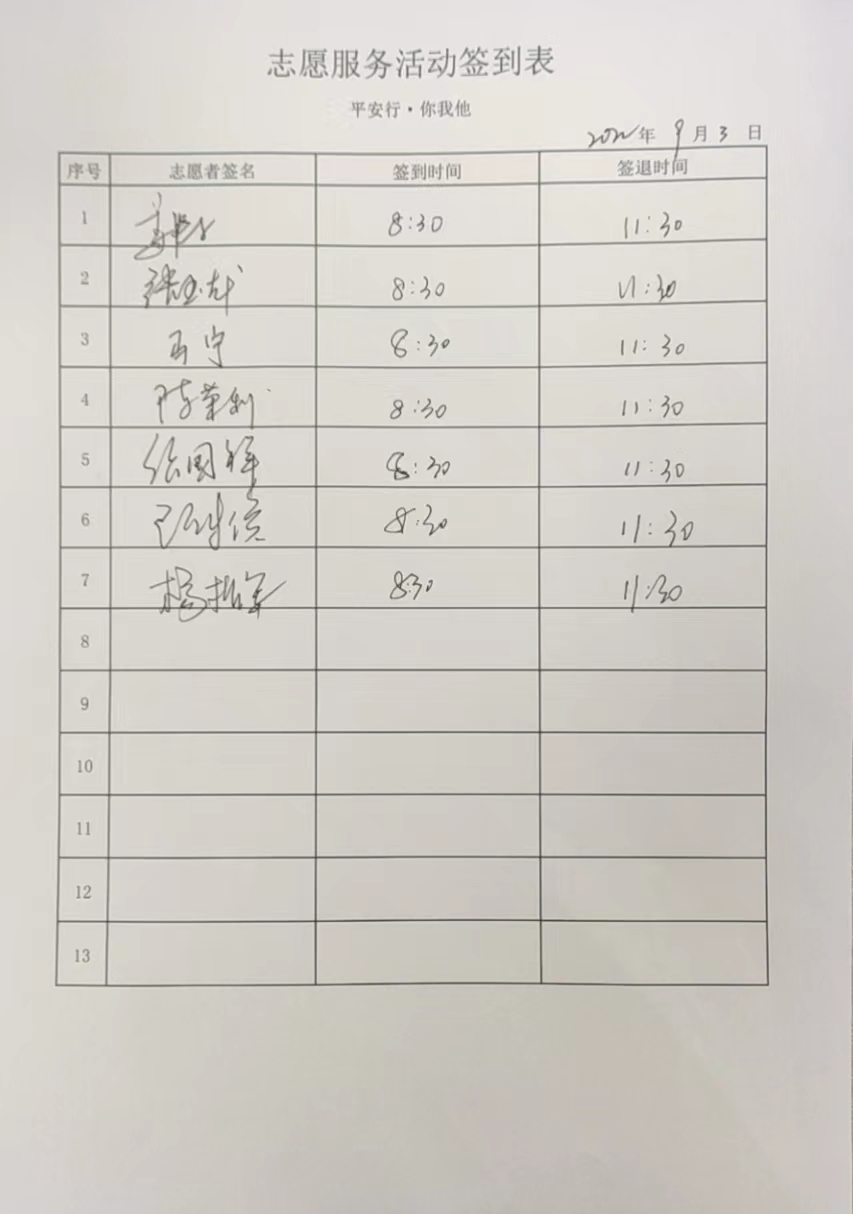 志愿服务活动签到表
平安行·你我他
2022年 9月3日
序号 志愿者签名 签到时间 签退时间
1 8:30 11:30
2 8:30 11:30
3 8:30 11:30
4 陈荣利 8:30 11:30
5 徐国祥 8:30 11:30
6 8:30 11:30
7 8:30 11:30
8
9
10
11
12
13